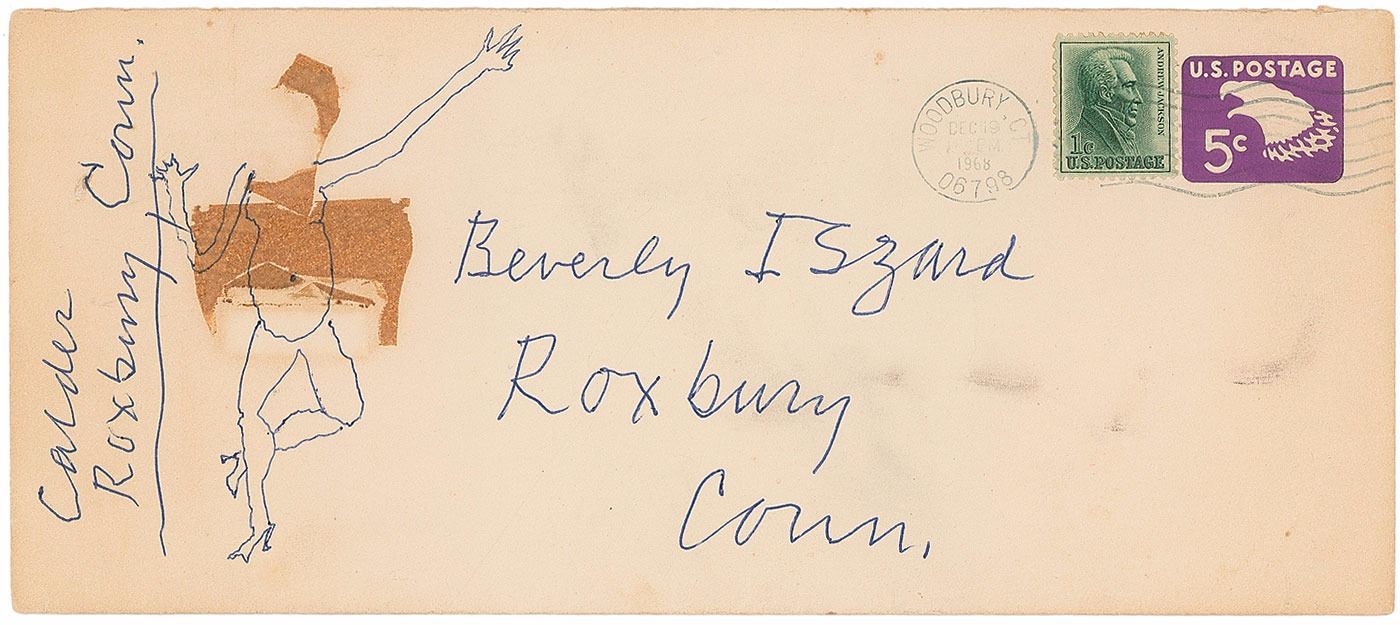 Calder
Roxbury Conn.
WOODBURY, CT
DEC 19
PM
1968
06798
ANDREW JACKSON
1c
U.S. POSTAGE
U.S. POSTAGE
5c
Beverly ISzard
Roxbury
Conn.